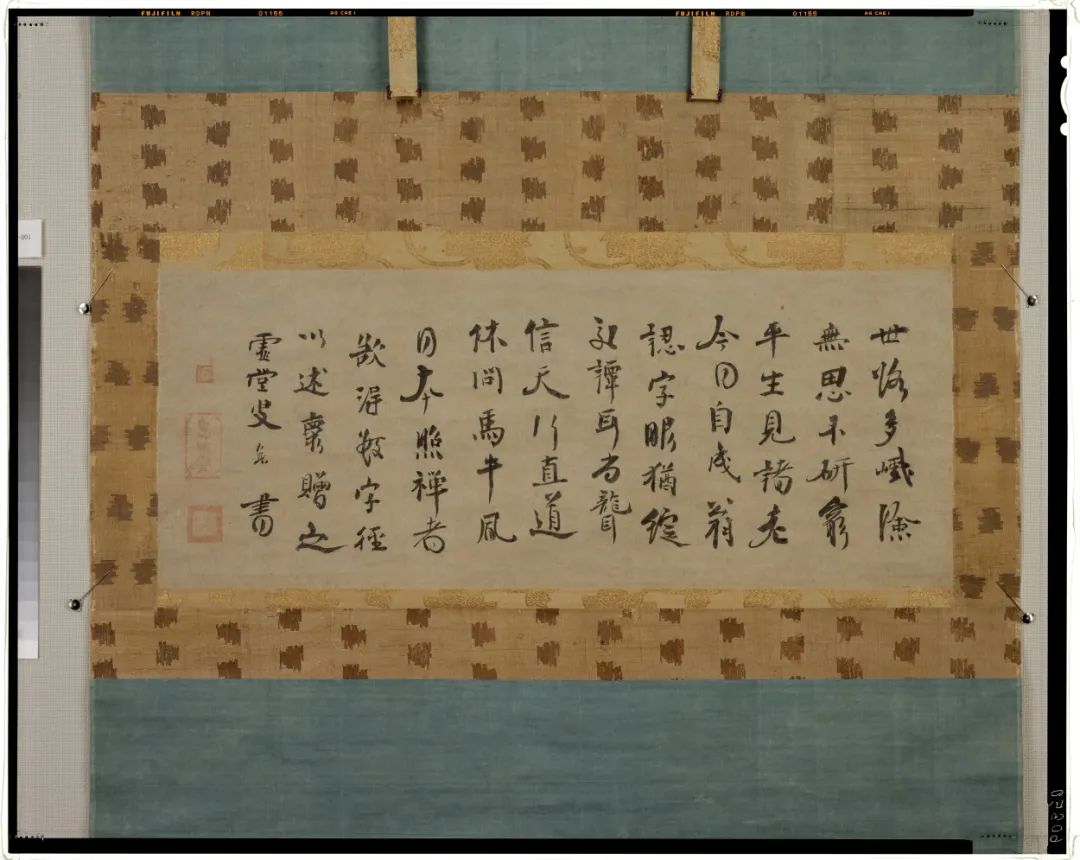 FUJIFILM RDPII 01155 FUJIFILM RDPII 01155
世路多巇險
無思不研窮
平生見諸老
今日自成翁
認字眼猶綻
交譚耳尚聾
信天行直道
休問馬牛風
日本照禅者
欲得數字徑
以述懷贈之
虛堂叟智愚書